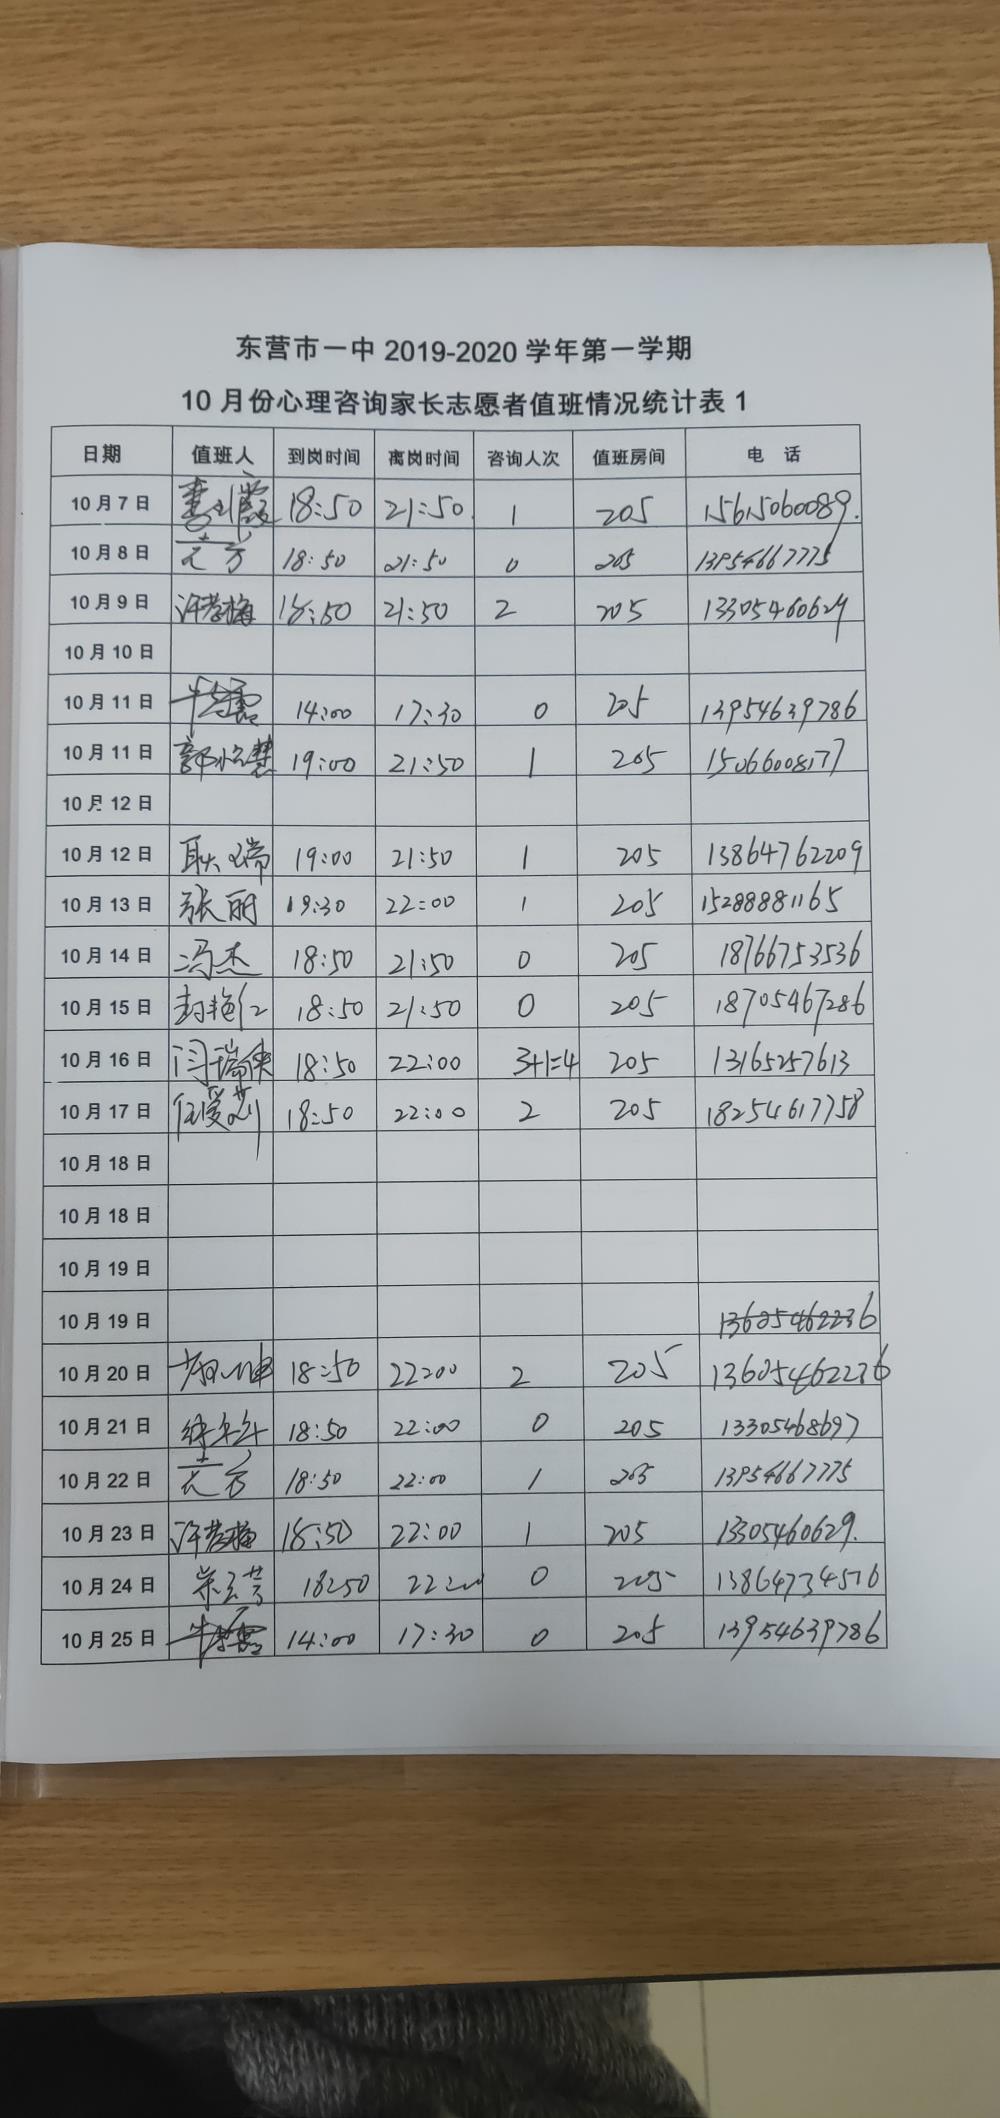 东营市一中 2019-2020 学年第一学期
10 月份心理咨询家长志愿者值班情况统计表 1
日期 值班人 到岗时间 离岗时间 咨询人次 值班房间 电 话
10 月 7 日 18:50 21:50 1 205 15615060089.
10 月 8 日 元方 18:50 21:50 0 205 13954667775
10 月 9 日 许孝梅 18:50 21:50 2 205 13305460629
10 月 10 日
10 月 11 日 14:00 17:30 0 205 13954639786
10 月 11 日 19:00 21:50 1 205 15066008177
10 月 12 日
10 月 12 日 耿瑞 19:00 21:50 1 205 13864762209
10 月 13 日 张丽 19:30 22:00 1 205 15288881165
10 月 14 日 冯杰 18:50 21:50 0 205 18766753536
10 月 15 日 封艳红 18:50 21:50 0 205 18705467286
10 月 16 日 闫瑞 18:50 22:00 3+1=4 205 13165257613
10 月 17 日 任爱 18:50 22:00 2 205 18254617758
10 月 18 日
10 月 18 日
10 月 19 日
10 月 19 日 13605462236
10 月 20 日 18:50 22:00 2 205 13605462236
10 月 21 日 18:50 22:00 0 205 13305468697
10 月 22 日 元方 18:50 22:00 1 205 13954667775
10 月 23 日 许孝梅 18:50 22:00 1 205 13305460629.
10 月 24 日 18:50 22:00 0 205 13864734576
10 月 25 日 14:00 17:30 0 205 13954639786